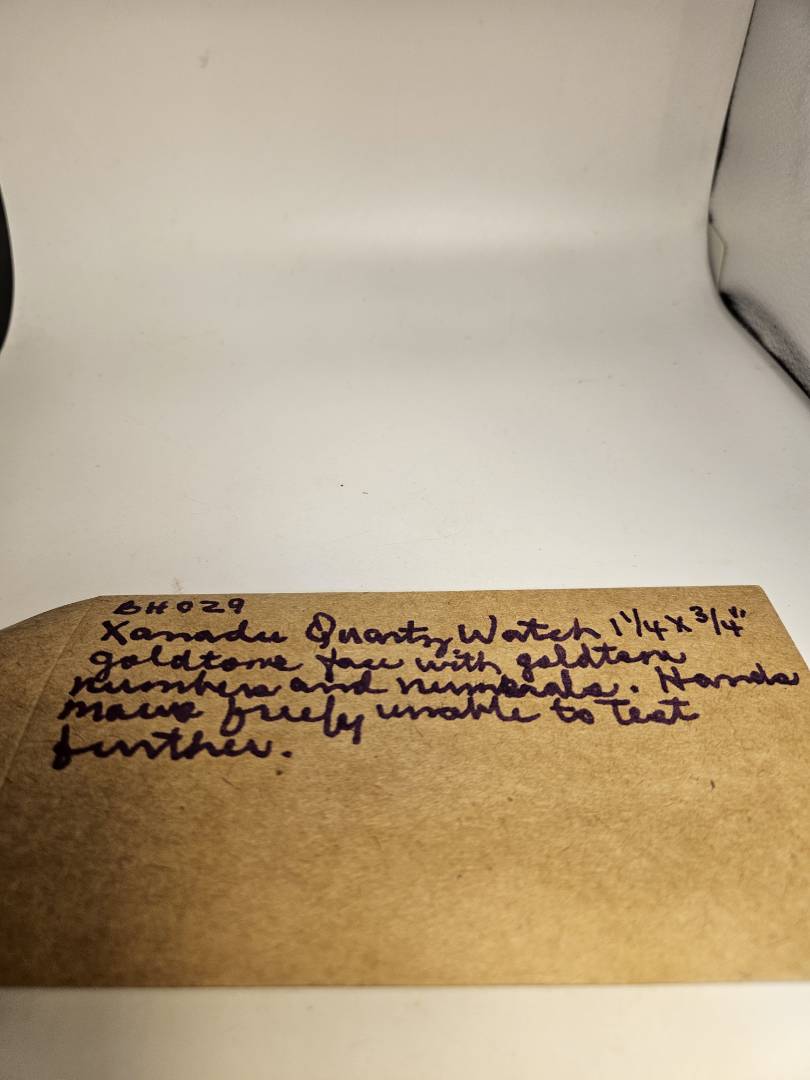 BH029
Xanadu Quartz Watch 1 1/4 X 3/4"
goldtone face with goldtone
numbers and numerals. Hands
move freely unable to test
further.